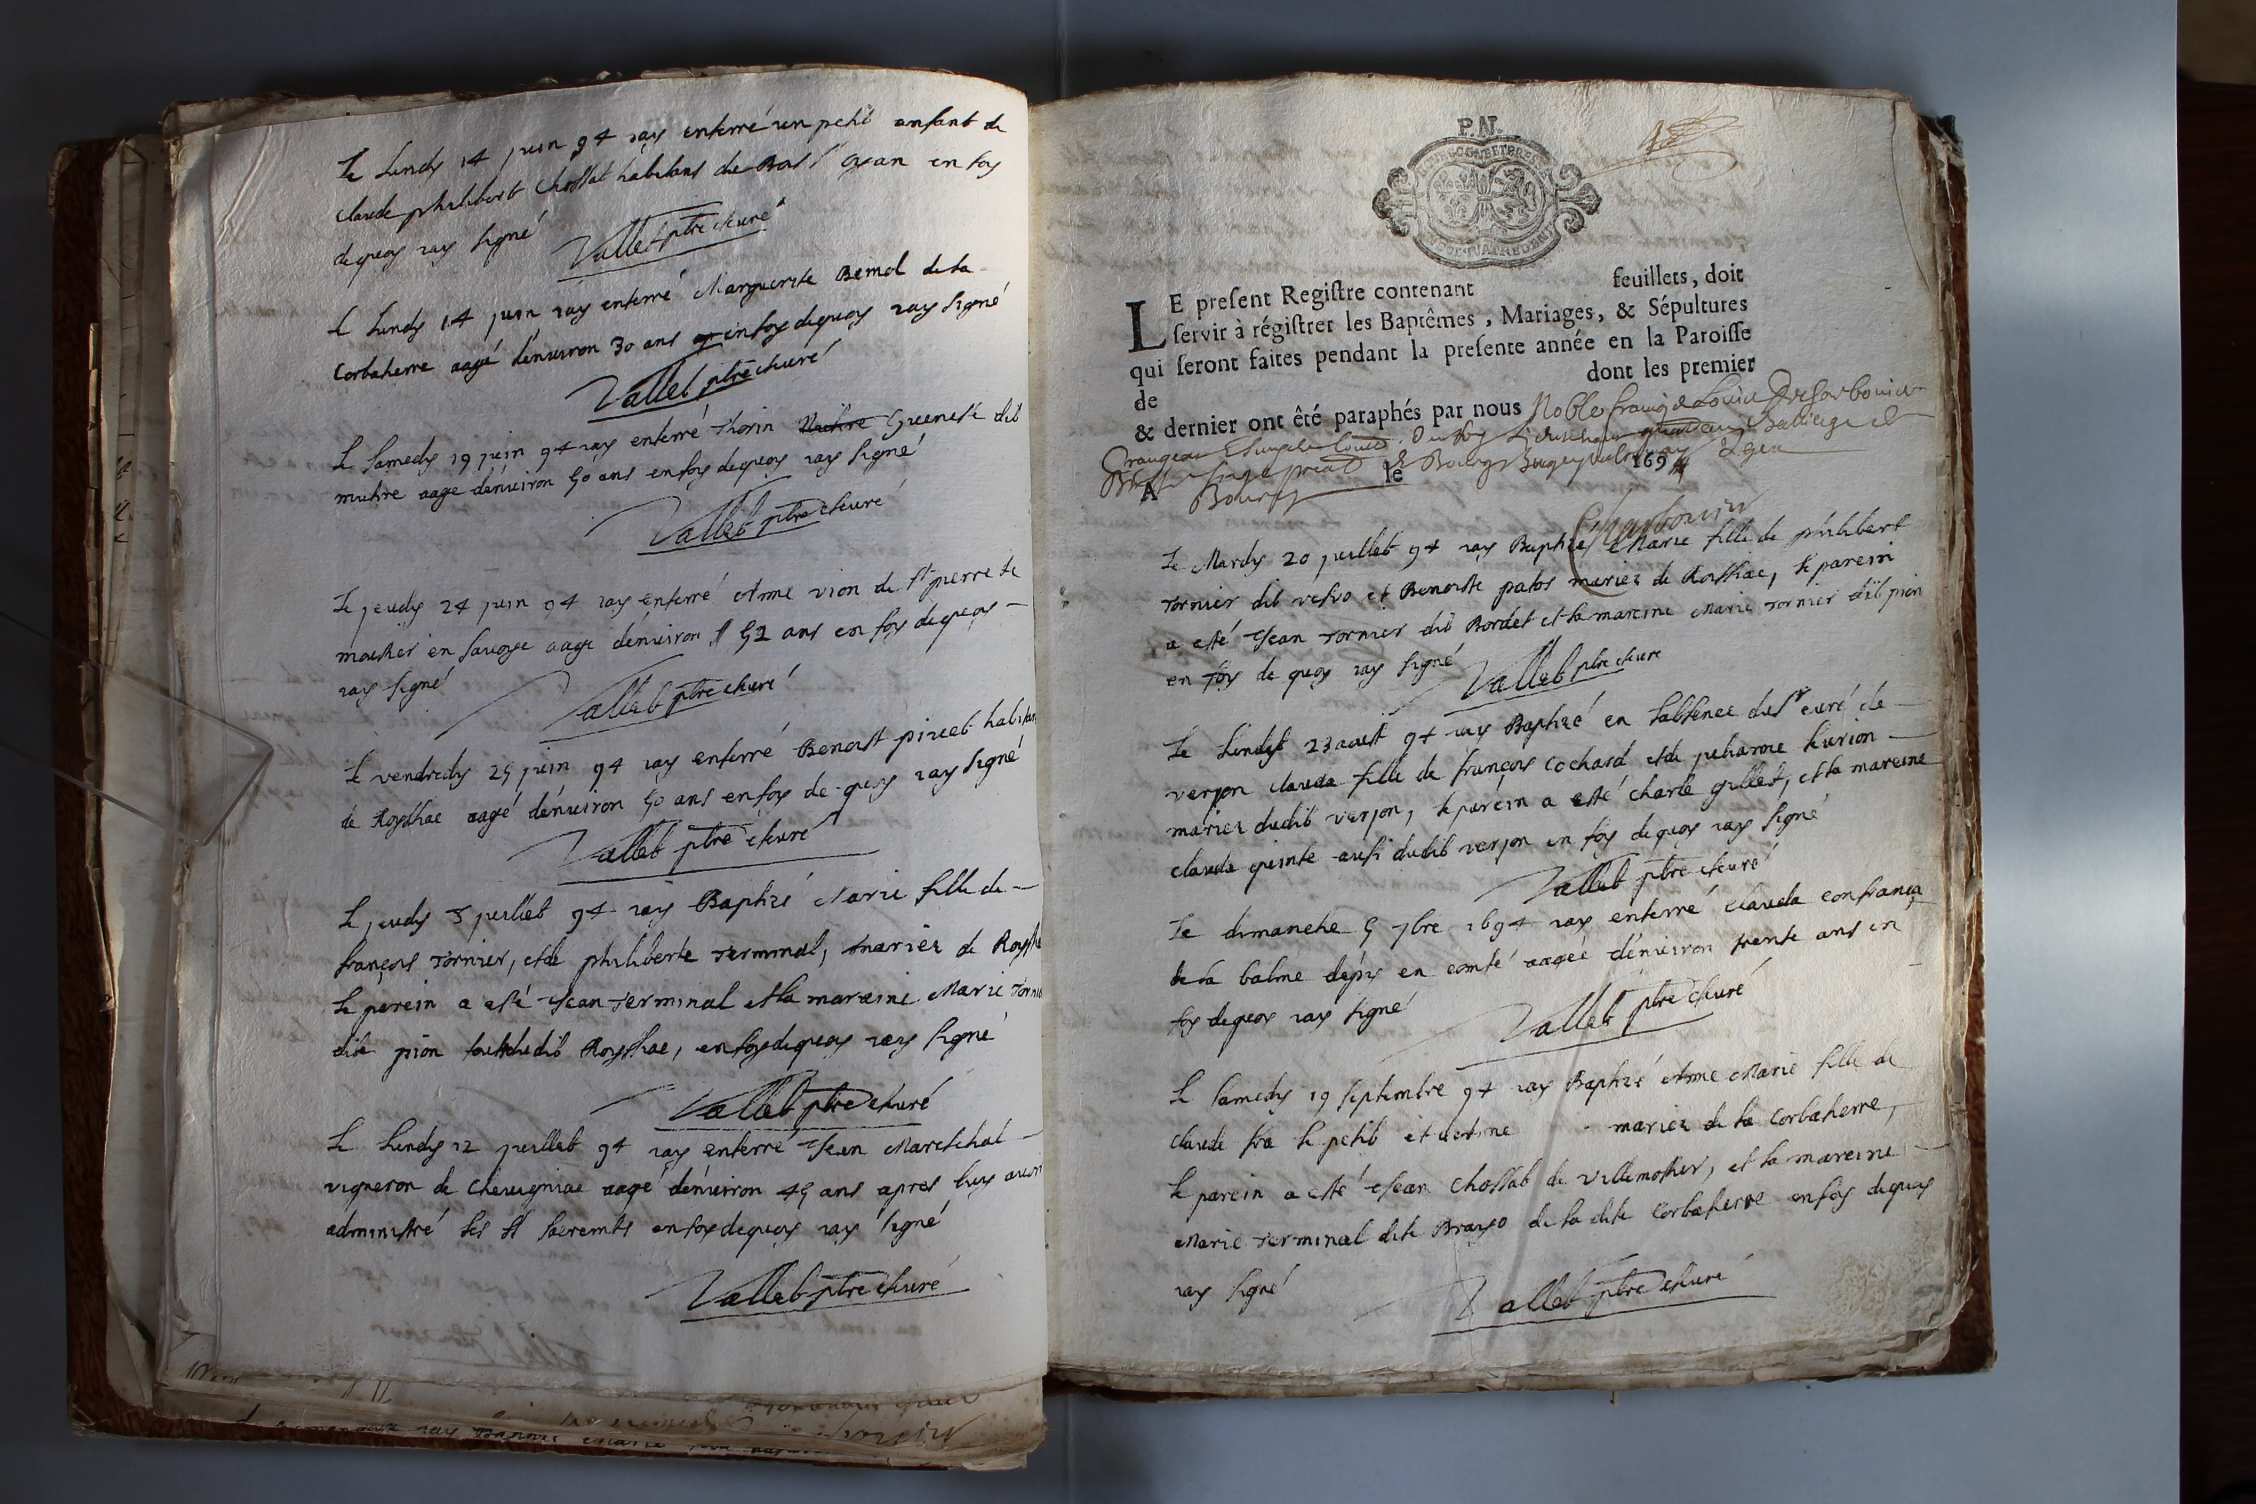 Le Lundy 14 juin 94 iay enterré un petit enfant de
claude philibert Chossat habitans de en foy
de quoy iay signé
Vallet ptre &curé
Le Lundy 14 juin iay enterré Marguerite de la
Corbaterre aagé d'enuiron 30 ans en foy de quoy iay signé
Vallet ptre &curé
Le Samedy 19 juin 94 iay enterré dit
aagé d'enuiron 50 ans en foy de quoy iay signé
Vallet ptre &curé
Le jeudy 24 juin 94 iay enterré Anne vion de St pierre le
en sauoye aagé d'enuiron 52 ans en foy de quoy
iay signé
Vallet ptre &curé
Le vendredy 25 juin 94 iay enterré Benoist
de aagé d'enuiron 50 ans en foy de quoy iay signé
Vallet ptre &curé
Le jeudy juillet 94 iay Baptisé Marie fille de
françois Tornier, et de philiberte Terminal, mariez de
le parein a esté Jean Terminal et la mareine Marie
dite pion dudit en foy de quoy iay signé
Vallet ptre &curé
Le Lundy 12 juillet 94 iay enterré Jean Mareschal
vigneron de aagé d'enuiron 45 ans apres luy auoir
administré les St en foy de quoy iay signé
Vallet ptre &curé
P.N.
LE preſent Regiſtre contenant feuillets, doit
ſervir à régiſtrer les Baptêmes, Mariages, & Sépultures
qui ſeront faites pendant la preſente année en la Paroiſſe
de dont les premier
& dernier ont êté paraphés par nous Noble françois Louis
A Bourg le 1694
Le Mardy 20 juillet 94 iay Baptisé Marie fille de philibert
Tornier dit et Benoiste mariez de le parein
a esté Jean Tornier dit Bordet et la mareine Marie Tornier dit pion
en foy de quoy iay signé
Vallet ptre &curé
Le Lundy 23 aoust 94 iay Baptisé en l'absence du Sr curé de
verjon clauda fille de françois Cochard et de
mariez dudit verjon, le parein a esté charle gillet, et la mareine
clauda ausi dudit verjon en foy de quoy iay signé
Vallet ptre &curé
Le dimanche 5 7bre 1694 iay enterré clauda
de la balme en comté aagée d'enuiron trente ans en
foy de quoy iay signé
Vallet ptre &curé
Le Samedy 19 Septembre 94 iay Baptisé Anne Marie fille de
claude le petit et d'Anne mariez de la Corbaterre,
le parein a esté Jean Chossat de Villemotier, et la mareine
Marie Terminal dite de la dite Corbaterre en foy de quoy
iay signé
Vallet ptre &curé